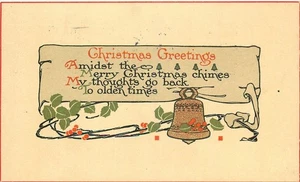 Christmas Greetings
Amidst the
Merry Christmas chimes
My thoughts go back
To olden times